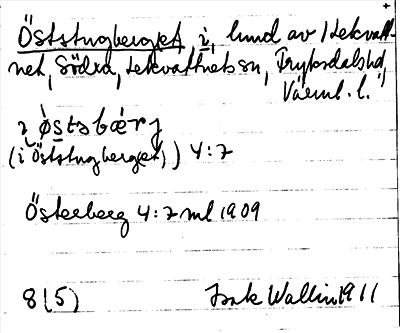 Öststugberget, i, lund av Lekvatt-
net, Södra, Lekvattnets sn, Fryksdals hd,
Värml. l.
i østsbærj
(i Öststugberget,) 4:7
Österberg 4:7 ml 1909
8(5) Isak Wallin 1911